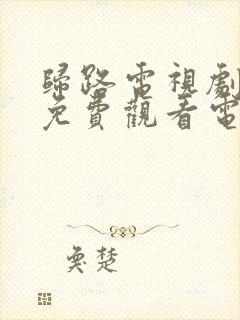 歸路電視劇
免費觀看電
奐楚